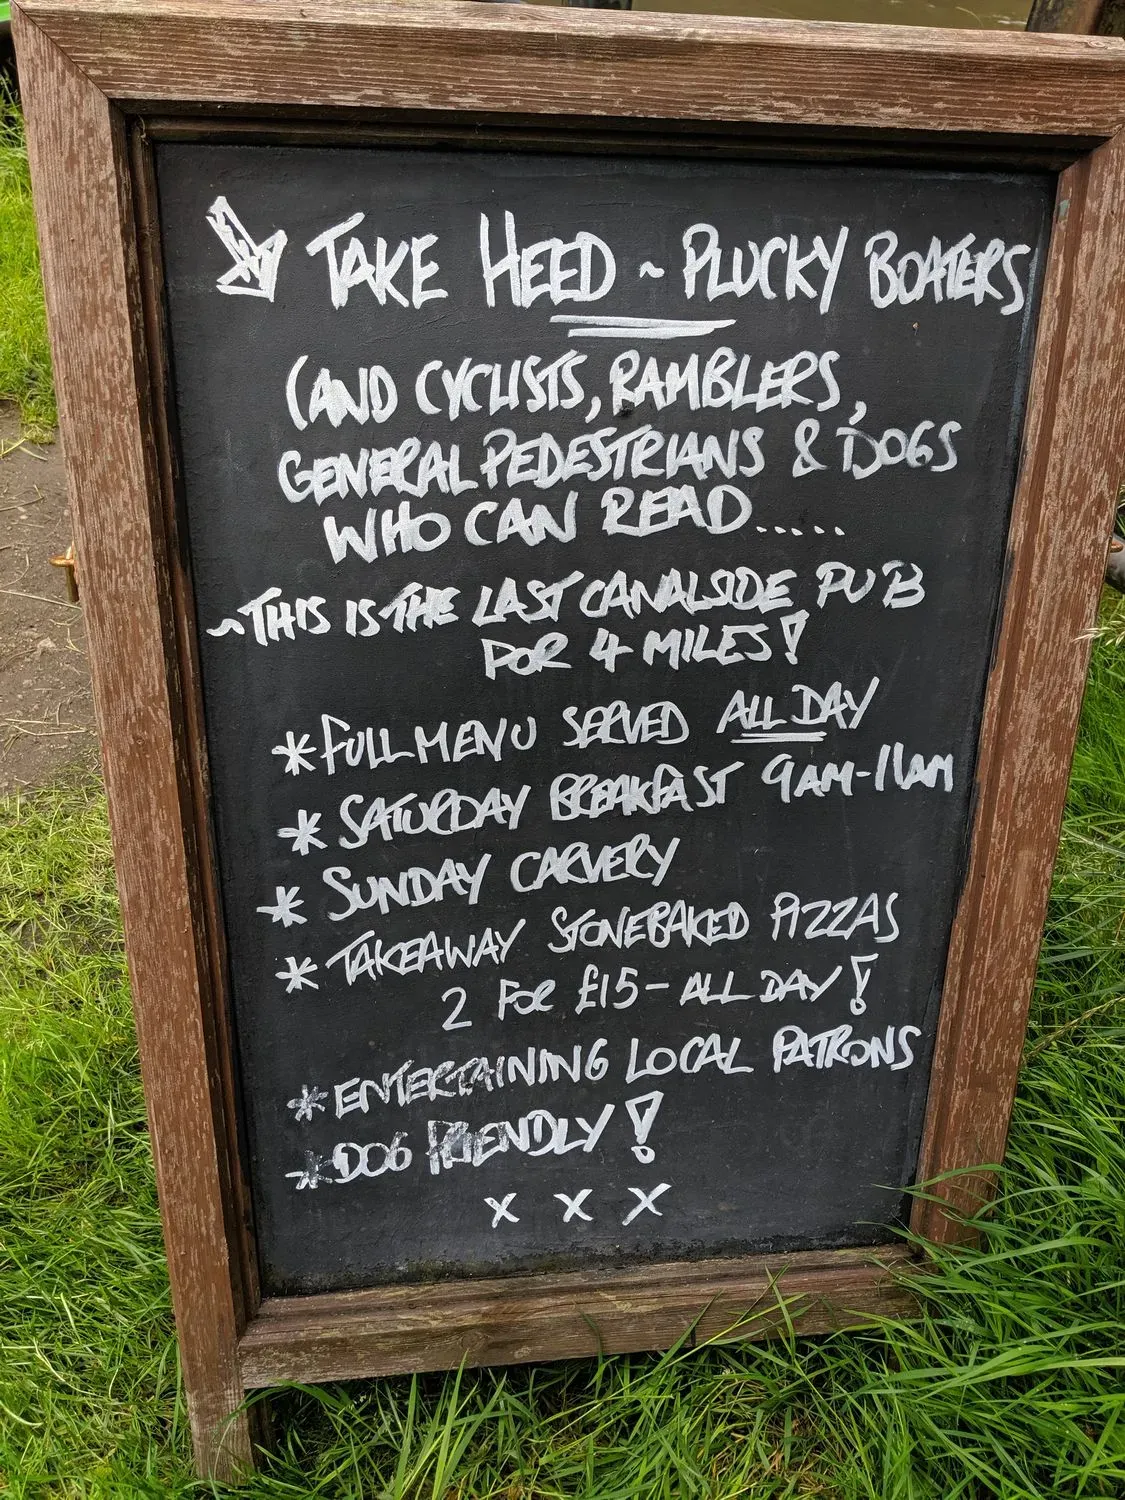 TAKE HEED ~ PLUCKY BOATERS
(AND CYCLISTS, RAMBLERS,
GENERAL PEDESTRIANS & DOGS
WHO CAN READ.....
~THIS IS THE LAST CANALSIDE PUB
FOR 4 MILES!
* FULL MENU SERVED ALL DAY
* SATURDAY BREAKFAST 9AM-11AM
* SUNDAY CARVERY
* TAKEAWAY STONEBAKED PIZZAS
2 FOR £15 - ALL DAY!
* ENTERTAINING LOCAL PATRONS
* DOG FRIENDLY!
X X X